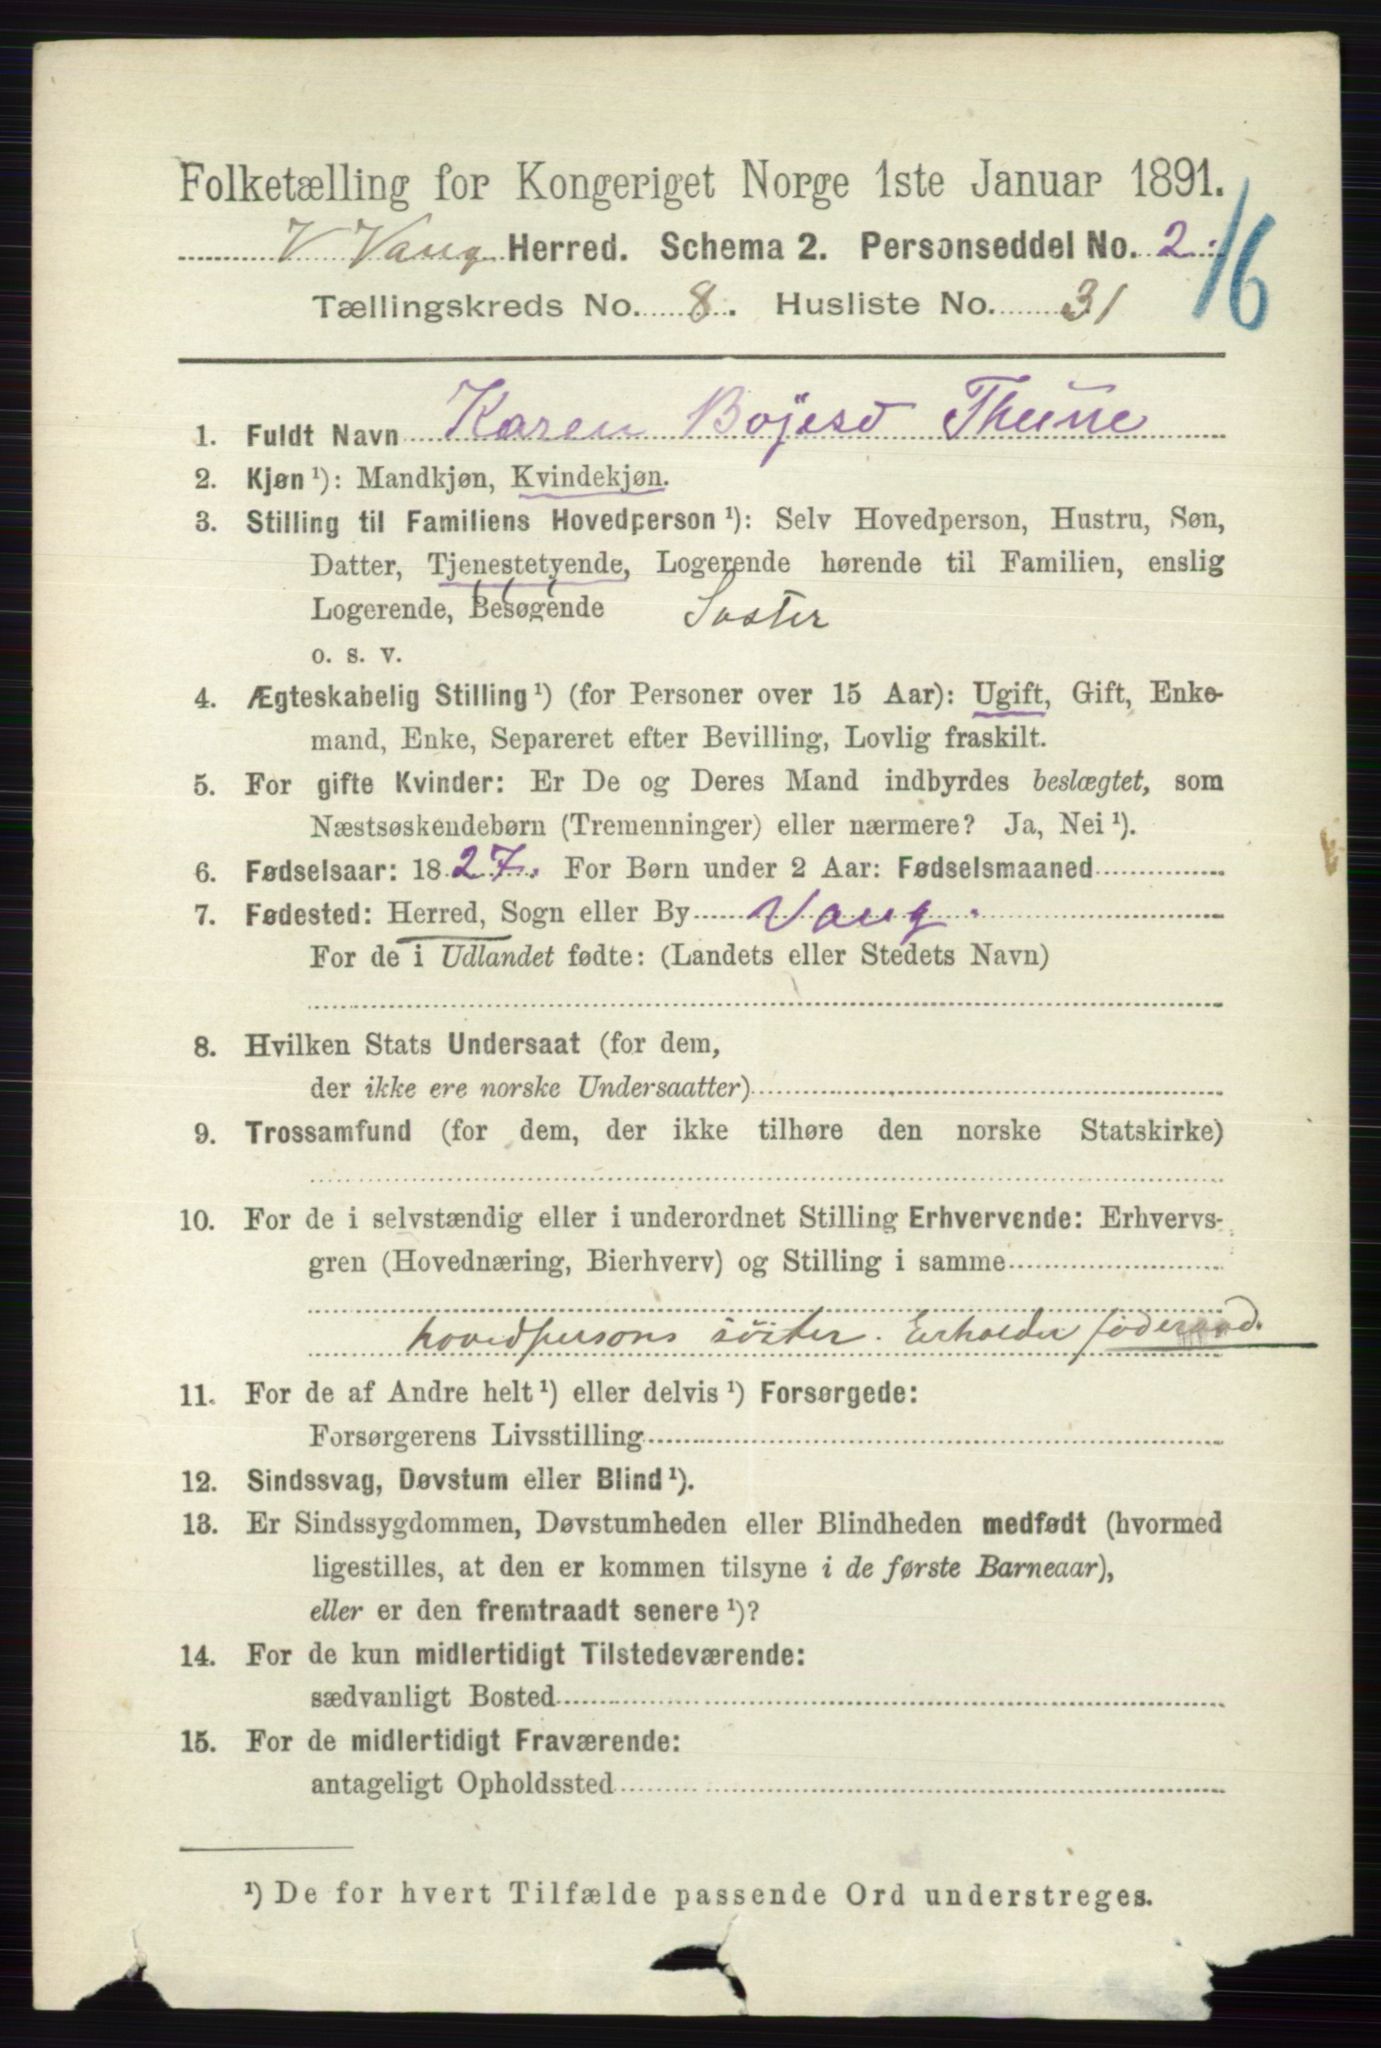 Folketælling for Kongeriget Norge 1ste Januar 1891.
V Vang Herred. Schema 2. Personseddel No. 2.
16
Tællingskreds No. 8. Husliste No. 31
1. Fuldt Navn Karen Bojesd Thune
2. Kjøn ¹): Mandkjøn, Kvindekjøn.
3. Stilling til Familiens Hovedperson ¹): Selv Hovedperson, Hustru, Søn,
Datter, Tjenestetyende, Logerende hørende til Familien, enslig
Logerende, Besøgende Søster
o. s. v.
4. Ægteskabelig Stilling ¹) (for Personer over 15 Aar): Ugift, Gift, Enke-
mand, Enke, Separeret efter Bevilling, Lovlig fraskilt.
5. For gifte Kvinder: Er De og Deres Mand indbyrdes beslægtet, som
Næstsøskendebørn (Tremenninger) eller nærmere? Ja, Nei ¹).
6. Fødselsaar: 1827. For Børn under 2 Aar: Fødselsmaaned
7. Fødested: Herred, Sogn eller By Vang.
For de i Udlandet fødte: (Landets eller Stedets Navn)
8. Hvilken Stats Undersaat (for dem,
der ikke ere norske Undersaatter)
9. Trossamfund (for dem, der ikke tilhøre den norske Statskirke)
10. For de i selvstændig eller i underordnet Stilling Erhvervende: Erhvervs-
gren (Hovednæring, Bierhverv) og Stilling i samme
hovedpersons söster. Erholder föderaad.
11. For de af Andre helt ¹) eller delvis ¹) Forsørgede:
Forsørgerens Livsstilling
12. Sindssvag, Døvstum eller Blind ¹).
13. Er Sindssygdommen, Døvstumheden eller Blindheden medfødt (hvormed
ligestilles, at den er kommen tilsyne i de første Barneaar),
eller er den fremtraadt senere ¹)?
14. For de kun midlertidigt Tilstedeværende:
sædvanligt Bosted
15. For de midlertidigt Fraværende:
antageligt Opholdssted
¹) De for hvert Tilfælde passende Ord understreges.